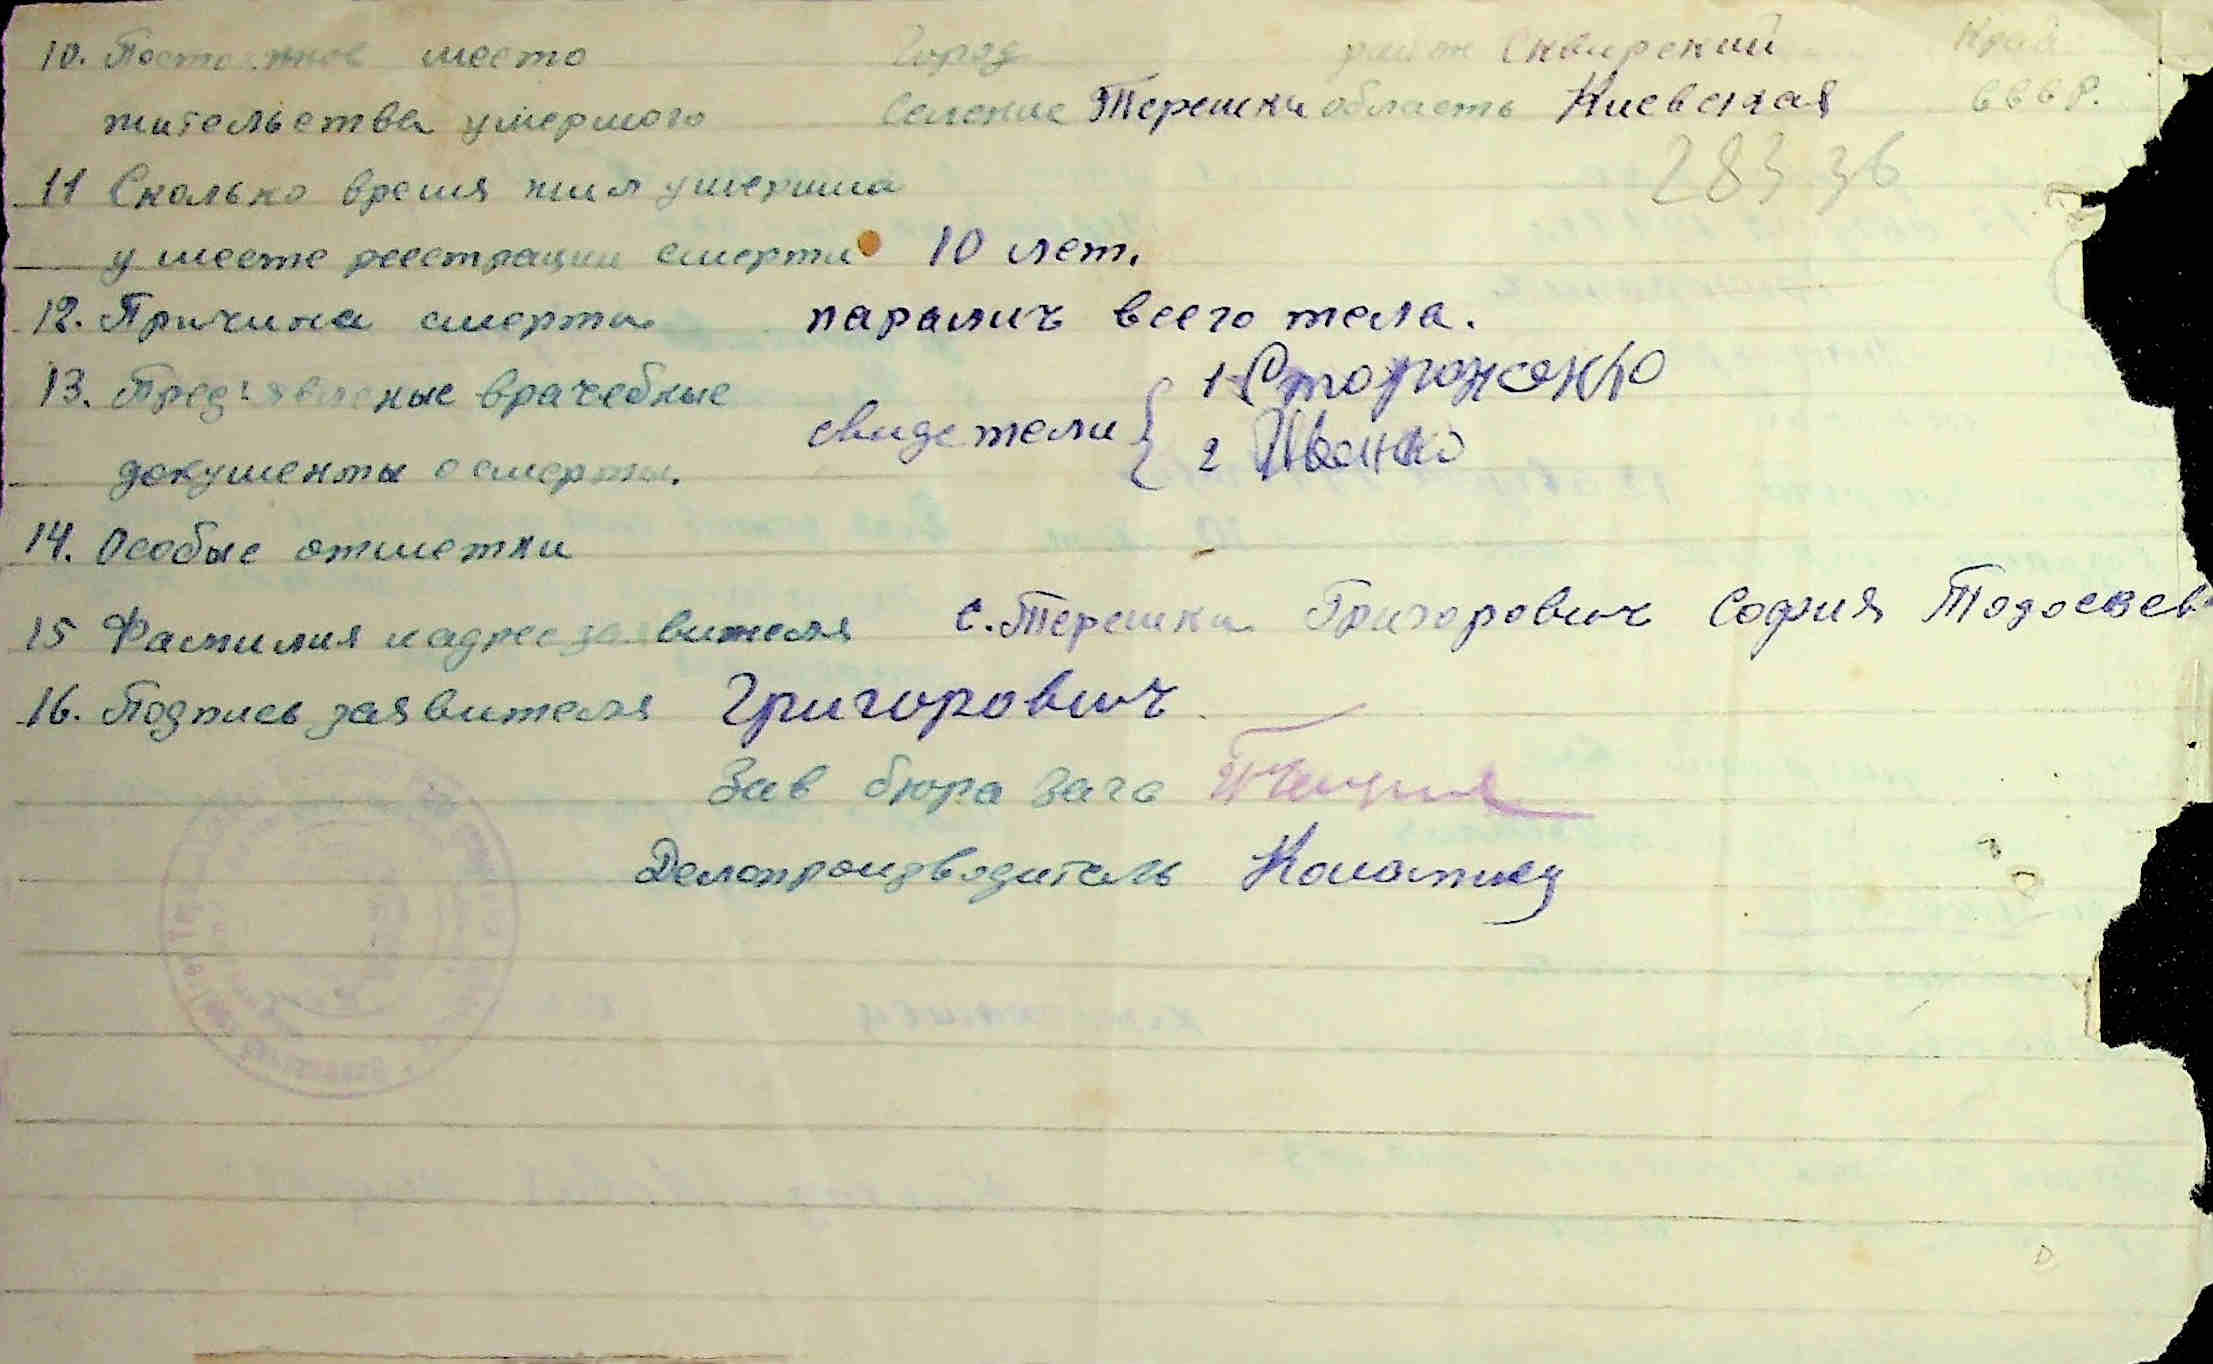 10. Постоянное место Город район Сквирский Край
жительства умершого Селение Терешки область Киевская СССР.
283 36
11 Сколько время жил умерший
у месте реестрации смерти 10 лет.
12. Причина смерти паралич всего тела.
13. Предъявленые врачебные
документы о смерти. свидетели { 1 Стороженко
2 Иванко
14. Особые отметки
15 Фамилия и адрес заявителя с. Терешки Григорович София Тодосеев
16. Подпись заявителя Григорович
Зав бюра загс
Делопроизводитель